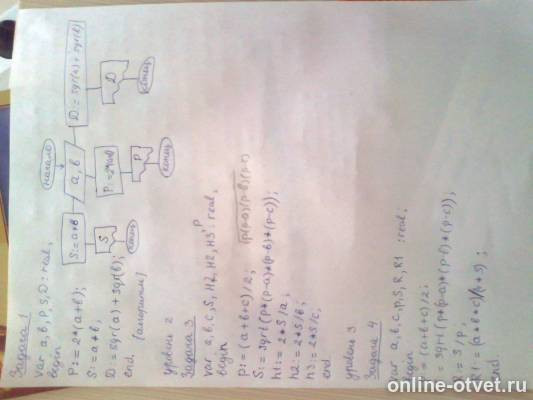 Задача 1
var a, b, P, S, D: real;
begin
P:= 2*(a+b);
S:= a*b;
D:= sqr(a) + sqr(b);
end.
начало
a, b
S:= a*b
S
конец
P:= 2*(a+b)
P
конец
D:= sqr(a) + sqr(b)
D
конец
уровень 2
Задача 3
var a, b, c, S, H1, H2, H3, P : real;
begin
p:= (a+b+c)/2;
(p(p-a)(p-b)(p-c)
S:= sqrt(p*(p-a)*(p-b)*(p-c));
h1:= 2*S/a;
h2:= 2*S/b;
h3:= 2*S/c;
end
уровень 3
Задача 4
var a, b, c, p, S, R, R1 : real;
begin
= (a+b+c)/2;
= sqrt(p*(p-a)*(p-b)*(p-c));
:= S/p;
R1:= (a*b*c)/(4*S);
end
online-otvet.ru